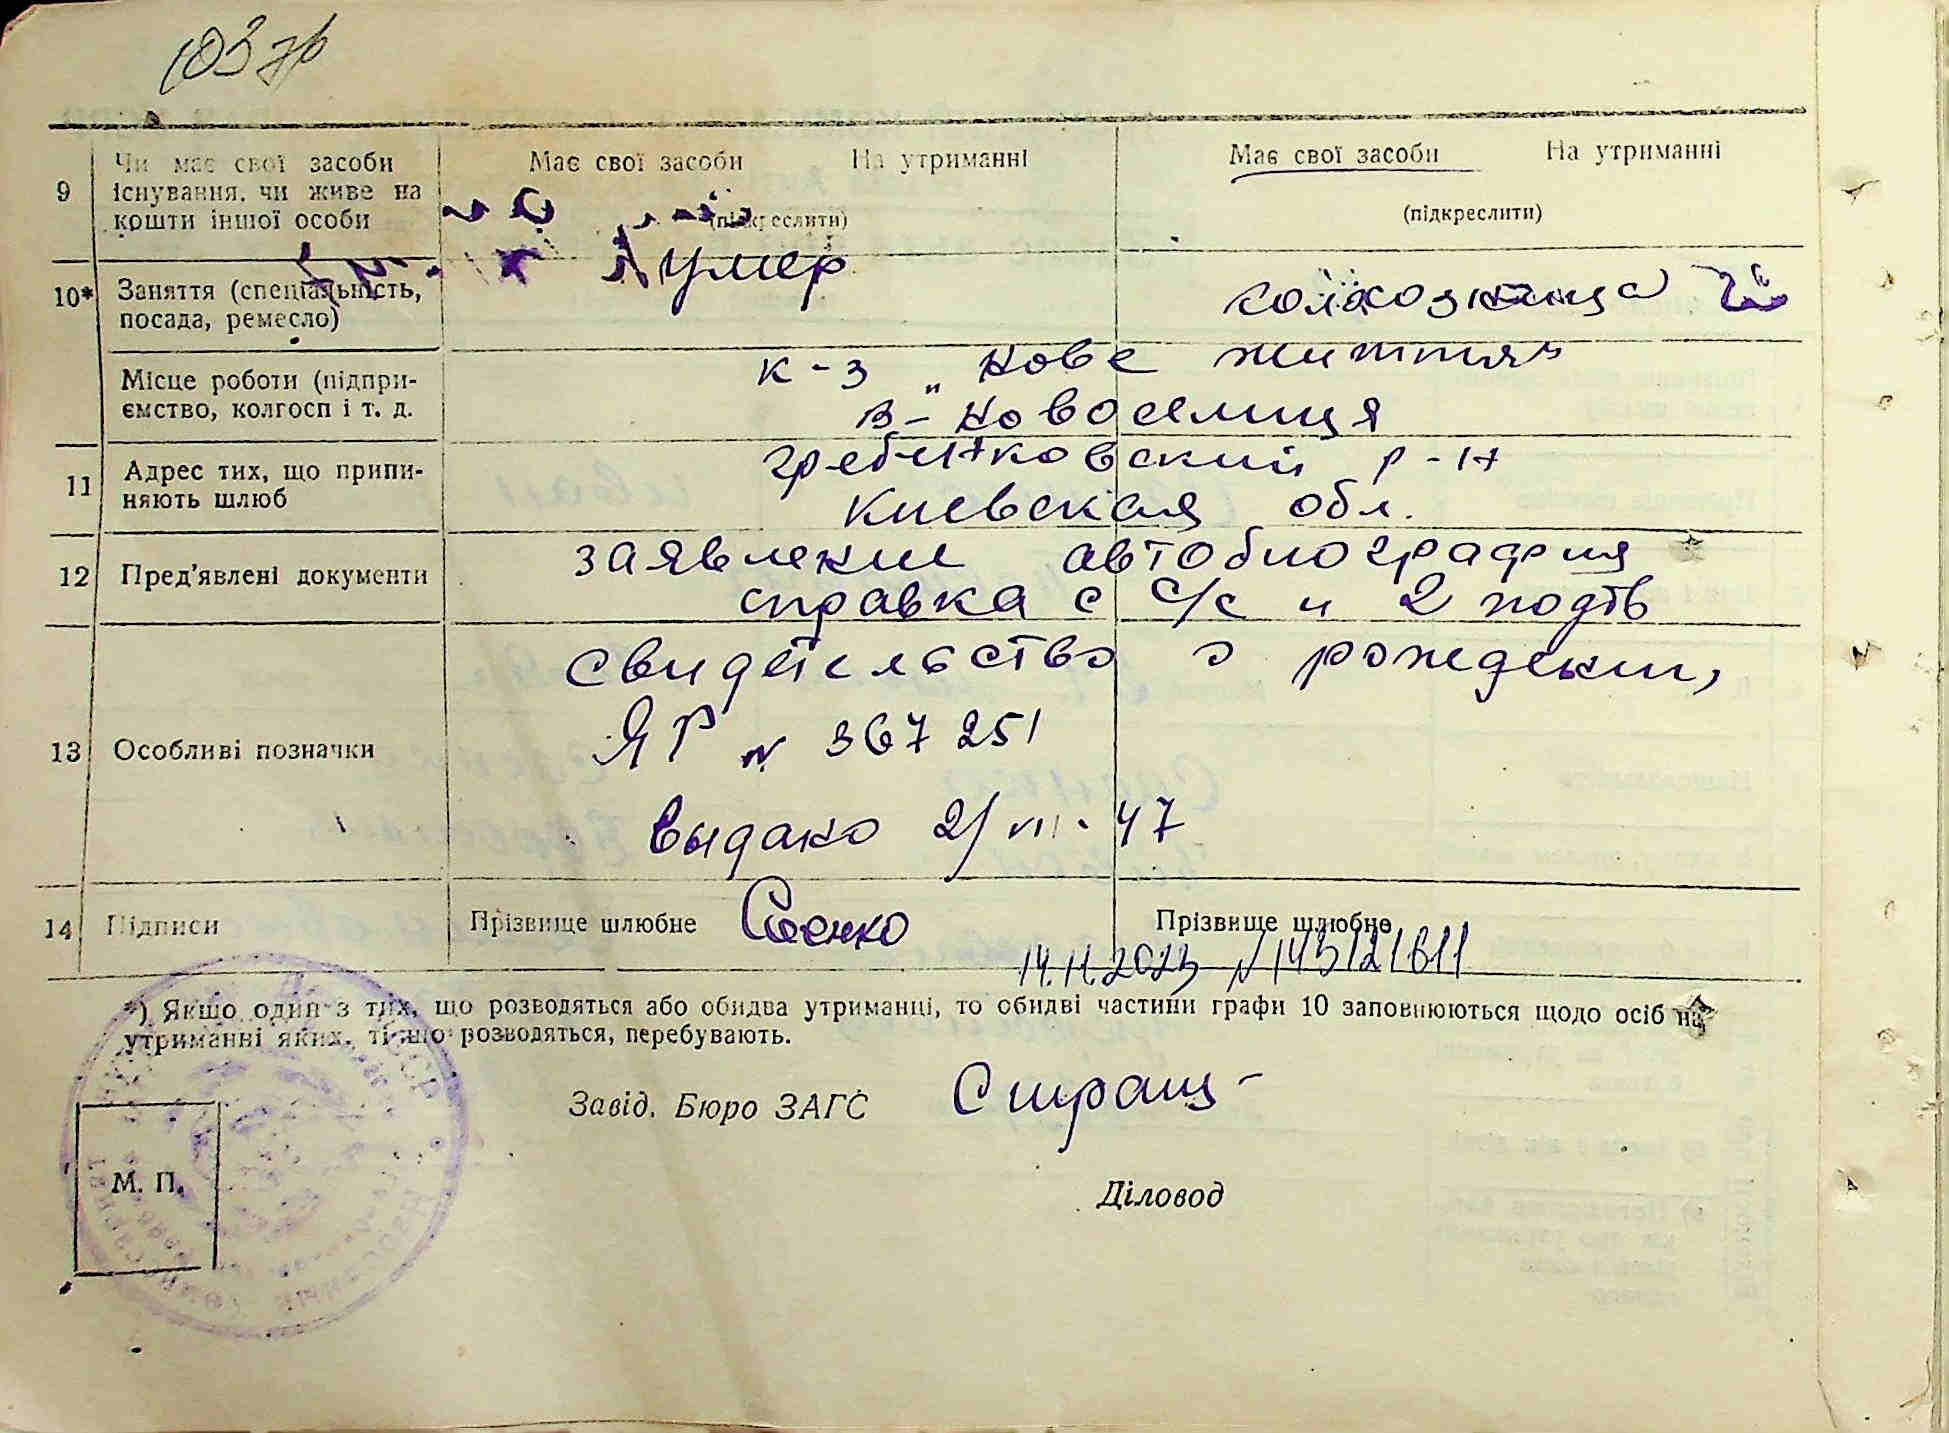 103
9 Чи має свої засоби існування, чи живе на кошти іншої особи
Має свої засоби На утриманні
(підкреслити)
Має свої засоби На утриманні
(підкреслити)
10* Заняття (спеціальність, посада, ремесло)
умер
колхозница
Місце роботи (підпри-
ємство, колгосп і т. д.
к-з „Нове життя"
В-Новоселиця
11 Адрес тих, що припи-
няють шлюб
гребенковский р-н
Киевская обл.
12 Пред'явлені документи
заявление автобиография
справка с с/с и 2 подтв
13 Особливі позначки
свидетельство о рождении,
ЯР № 367251
выдано 2/VII-47
14 Підписи
Прізвище шлюбне
Прізвище шлюбне
14.11.2023 №143121611
*) Якщо один з тих, що розводяться або обидва утриманці, то обидві частини графи 10 заповнюються щодо осіб на
утриманні яких, ті що розводяться, перебувають.
Завід. Бюро ЗАГС
М. П.
Діловод